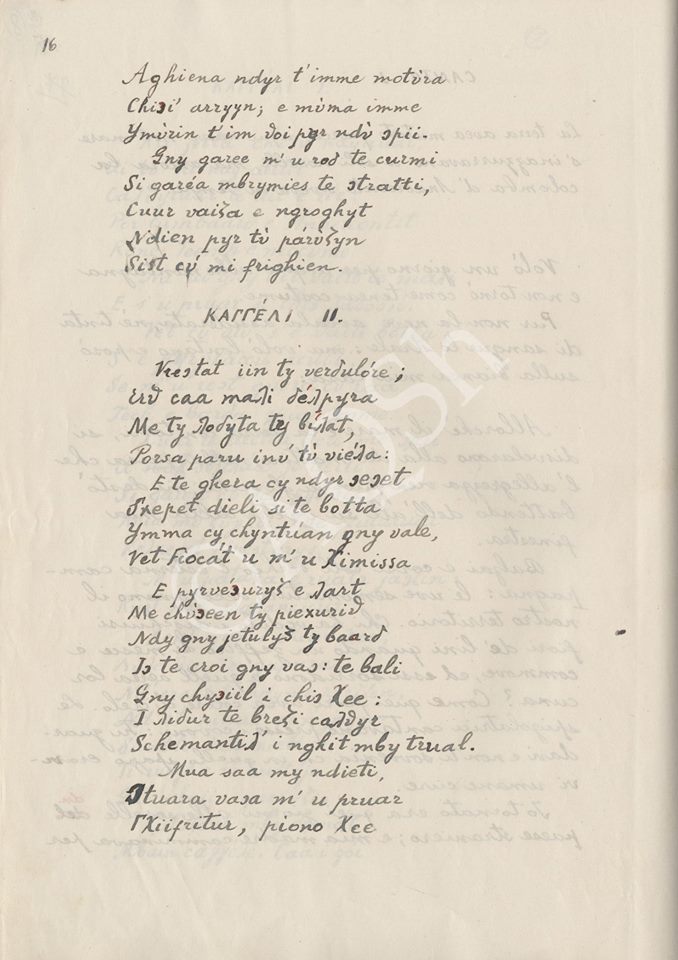 16
Aghiena ndyr t'imme motúra
Chiɜi' arryyn; e múma imme
Ymùrin t'im ϑoi pyr ndù ɜpii.
Gny garee m' u rod te curmi
Si garéa mbrymies te ɜtratti,
Cuur vaiζa e ngroghyt
Ndien pyr tù párùζyn
Sist cý mi frighien.
ΚΑΓΓΈΛΙ II.
iin ty verdulóre;
Érϑ caa maλi délpyra
Me ty λodyta ty bíλat,
Porsa paru inú tù viéλa:
E te ghera cy ndyr ɜeɜet
dieli si te botta
Ymma cy chyntrían gny vale,
Vet Fiocát u m' u Ximissa
E pyrvéɜuryζ e λart
Me chúɜeen ty piexuriϑ
Ndy gny jetulyζ ty baarδ
Iɜ te croi gny vaɜ: te bali
Gny chyɜiil i chiɜ Xee:
I λidur te breζi caλδyr
Schemantiλ' i nghit mby trual.
Mua saa my ndieti,
Ɔtuara vaɜa m' u pruar
ΓXiifritur, piono Xee
© qosh